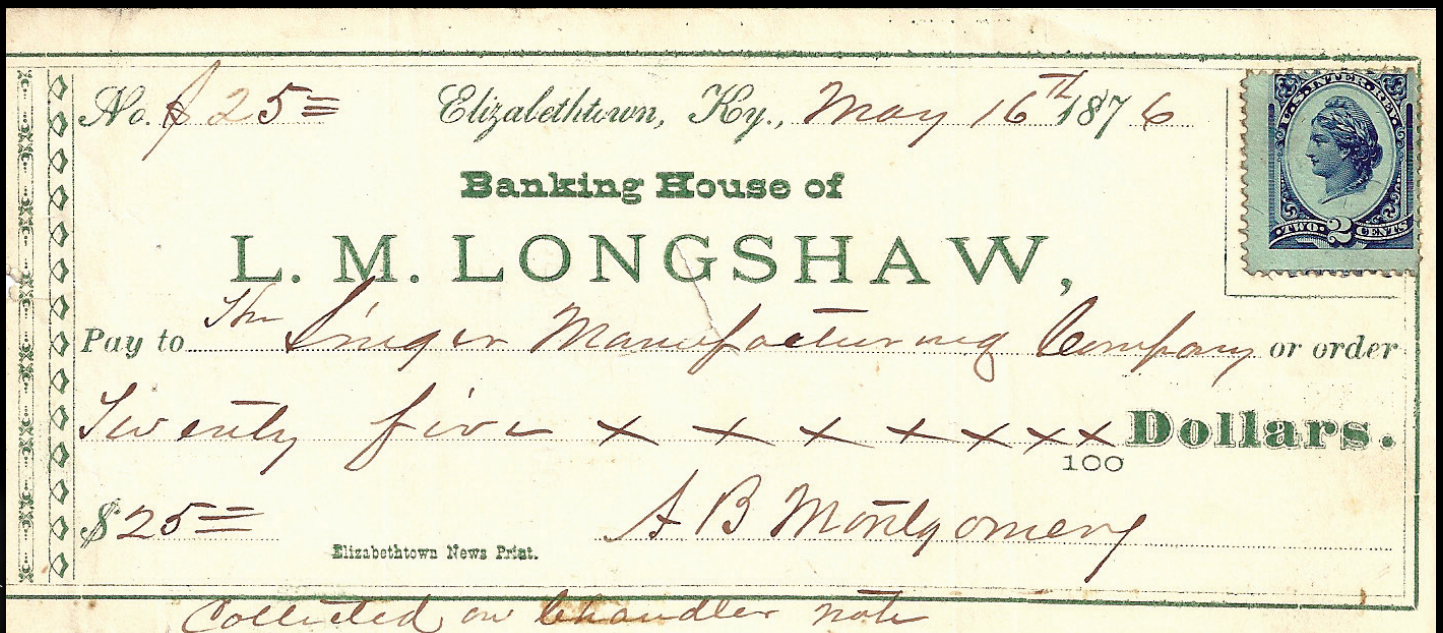 No. $25= Elizabethtown, Ky., May 16th 1876
U.S. INTER. REV.
TWO 2 CENTS
Banking House of
L. M. LONGSHAW,
Pay to The Singer Manufacturing Company or order
Twenty five x x x x x x x Dollars.
100
$25= A B Montgomery
Elizabethtown News Print.
Collected on Chandler note